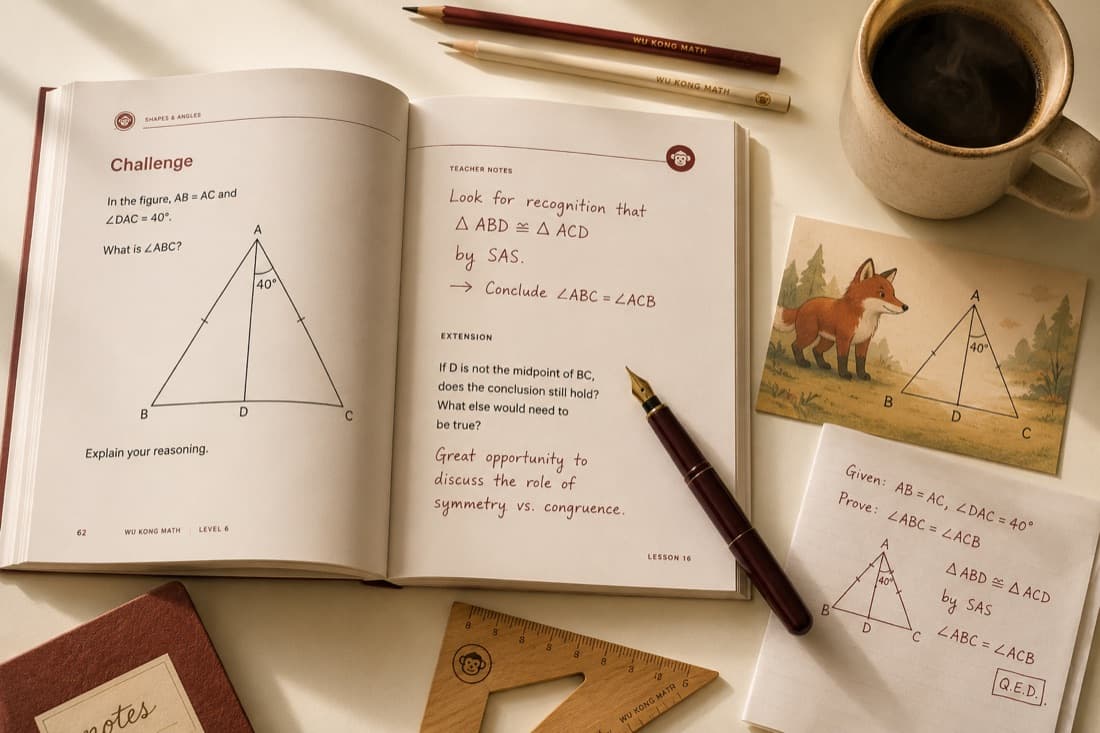 SHAPES & ANGLES
Challenge
In the figure, AB = AC and
∠DAC = 40°.
What is ∠ABC?
A
40°
B
D
C
Explain your reasoning.
62 WU KONG MATH | LEVEL 6
TEACHER NOTES
Look for recognition that
△ ABD ≅ △ ACD
by SAS.
→ Conclude ∠ABC = ∠ACB
EXTENSION
If D is not the midpoint of BC,
does the conclusion still hold?
What else would need to
be true?
Great opportunity to
discuss the role of
symmetry vs. congruence.
LESSON 16
WU KONG MATH
WU KONG MATH
A
40°
B
D
C
Given: AB = AC, ∠DAC = 40°
Prove: ∠ABC = ∠ACB
A
40°
B
D
C
△ ABD ≅ △ ACD
by SAS
∠ABC = ∠ACB
Q.E.D.
notes
WU KONG MATH